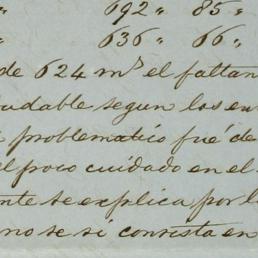 " 692 " 85 "
" 636 " 66 "
de 624 m.s el faltan
udable segun los en
problematico fué de
el poco cuidado en el
nte se explica por l
no se si consista en